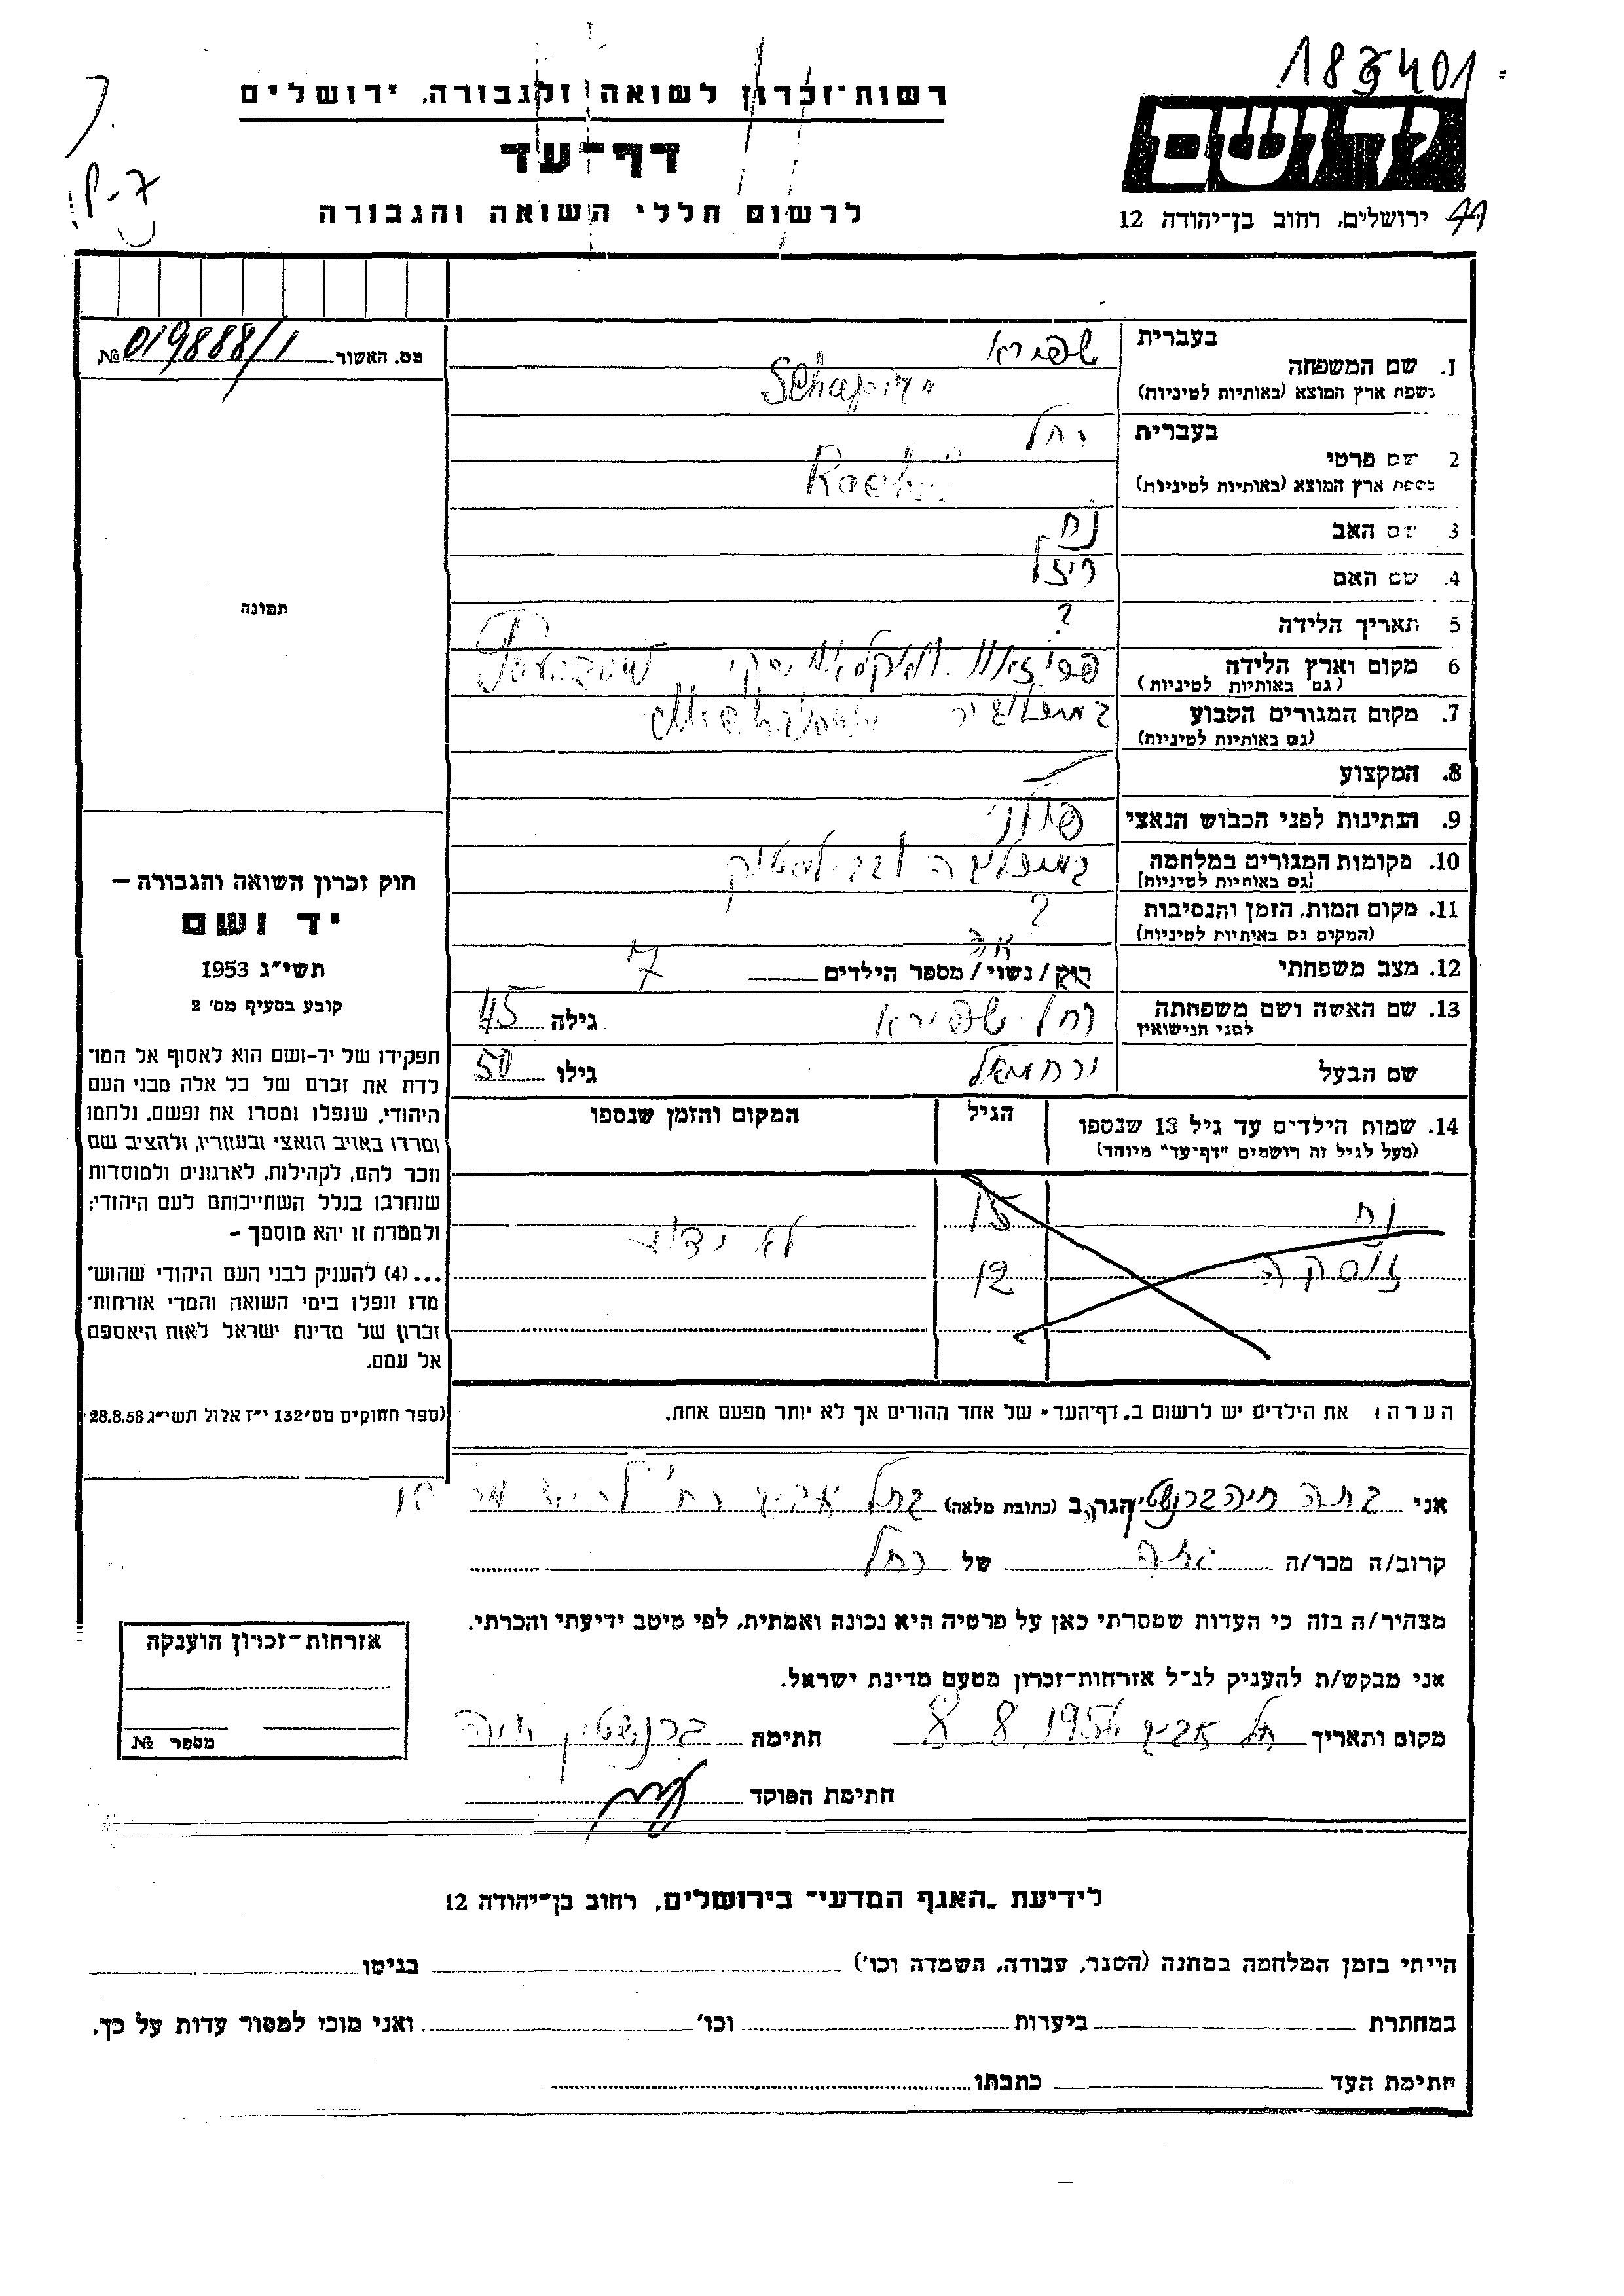 183401
רשות-זכרון לשואה ולגבורה, ירושלים
דף-עד
לרשום חללי השואה והגבורה
יד ושם
ירושלים, רחוב בן-יהודה 12
מס. האשור 019888/1 №
בעברית שפירא
1. שם המשפחה
בשפת ארץ המוצא (באותיות לטיניות)
בעברית רחל
2 שם פרטי
בשפת ארץ המוצא (באותיות לטיניות)
3 שם האב נח
4. שם האם רייזל
5 תאריך הלידה ?
6 מקום וארץ הלידה
(גם באותיות לטיניות)
7. מקום המגורים הקבוע
(גם באותיות לטיניות)
8. המקצוע
9. הנתינות לפני הכבוש הנאצי פולני
10. מקומות המגורים במלחמה
(גם באותיות לטיניות)
11. מקום המות, הזמן והנסיבות ?
(המקום גם באותיות לטיניות)
12. מצב משפחתי רווק/נשוי/מספר הילדים 7
13. שם האשה ושם משפחתה רחל שפירא גילה 45
לפני הנישואין
שם הבעל ירחמיאל גילו 50
14. שמות הילדים עד גיל 18 שנספו הגיל המקום והזמן שנספו
(מעל לגיל זה רושמים "דף-עד" מיוחד)
נח 15 לא ידוע
12
הערה: את הילדים יש לרשום ב„דף-העד" של אחד ההורים אך לא יותר מפעם אחת.
תמונה
חוק זכרון השואה והגבורה –
יד ושם
תשי"ג 1953
קובע בסעיף מס' 2
תפקידו של יד-ושם הוא לאסוף אל המו־
לדת את זכרם של כל אלה מבני העם
היהודי, שנפלו ומסרו את נפשם, נלחמו
ומרדו באויב הנאצי ובעוזריו, ולהציב שם
וזכר להם, לקהילות, לארגונים ולמוסדות
שנחרבו בגלל השתייכותם לעם היהודי;
ולמטרה זו יהא מוסמך –
...(4) להעניק לבני העם היהודי שהוש־
מדו ונפלו בימי השואה והמרי אזרחות־
זכרון של מדינת ישראל לאות היאספם
אל עמם.
(ספר החוקים מס' 132 י"ז אלול תשי"ג 28.8.53)
אני חיה ברנשטיין הגר/ה ב (כתובת מלאה) תל אביב רח'
קרוב/ה מכר/ה של רחל
מצהיר/ה בזה כי העדות שמסרתי כאן על פרטיה היא נכונה ואמתית, לפי מיטב ידיעתי והכרתי.
אני מבקש/ת להעניק לנ"ל אזרחות-זכרון מטעם מדינת ישראל.
מקום ותאריך תל אביב 8 8 1956 חתימה ברנשטיין חיה
חתימת הפוקד
אזרחות-זכרון הוענקה
מספר №
לידיעת „האגף המדעי" בירושלים, רחוב בן-יהודה 12
הייתי בזמן המלחמה במחנה (הסגר, עבודה, השמדה וכו') בגיטו
במחתרת ביערות וכו' ואני מוכן למסור עדות על כך.
חתימת העד כתבתו